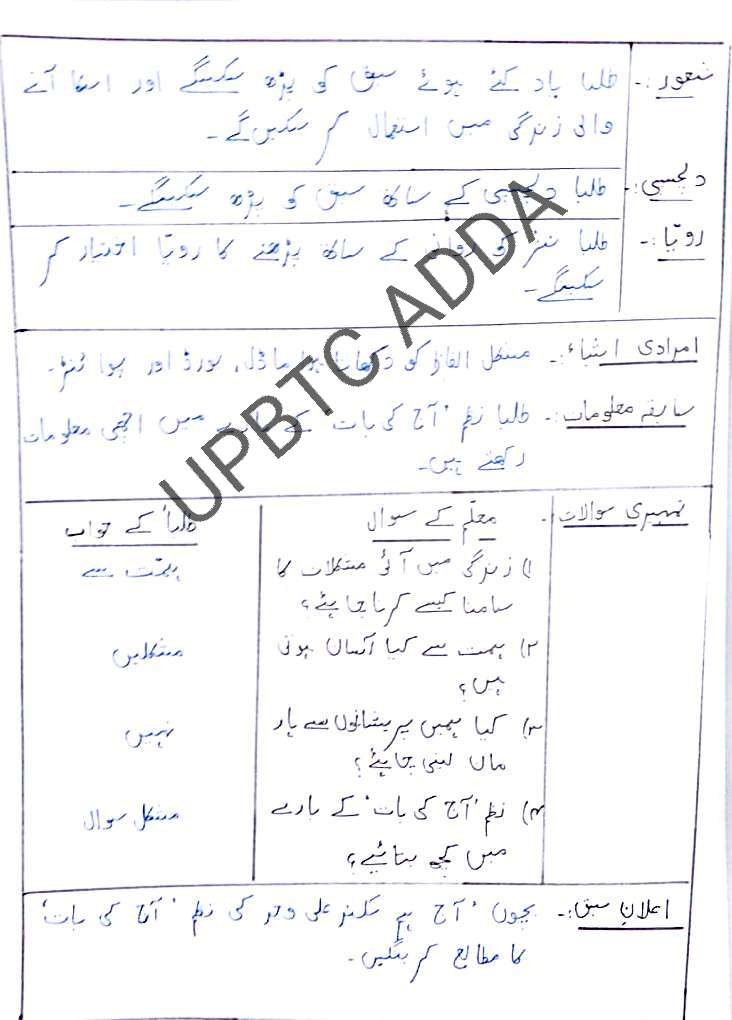 شعور:۔ طلبا یاد کئے ہوئے سبق کو پڑھ سکینگے اور اسکا آنے
والی زندگی میں استعمال کر سکیں گے۔
دلچسپی:۔ طلبا دلچسپی کے ساتھ سبق کو پڑھ سکینگے۔
رویّا:۔ طلبا نظم کو روانی کے ساتھ پڑھنے کا رویّا اختیار کر
سکینگے۔
امدادی اشیاء:۔ مشکل الفاظ کو دکھاتا ہوا ماڈل، بورڈ اور پوائنٹر۔
سابقہ معلومات:۔ طلبا نظم 'آج کی بات' کے بارے میں اچھی معلومات
رکھتے ہیں۔
تمہیدی سوالات:۔ معلّم کے سوال طلبا کے جواب
۱) زندگی میں آئی مشکلات کا ہمّت سے
سامنا کیسے کرنا چاہئے؟
۲) ہمت سے کیا آسان ہوتی مشکلیں
ہیں؟
۳) کیا ہمیں پریشانیوں سے ہار نہیں
مان لینی چاہئے؟
۴) نظم 'آج کی بات' کے بارے مشکل سوال
میں کچھ بتائیے؟
اعلانِ سبق:۔ بچوں 'آج ہم سکندر علی وجد کی نظم 'آج کی بات'
کا مطالع کرینگیں۔
UPBTC ADDA